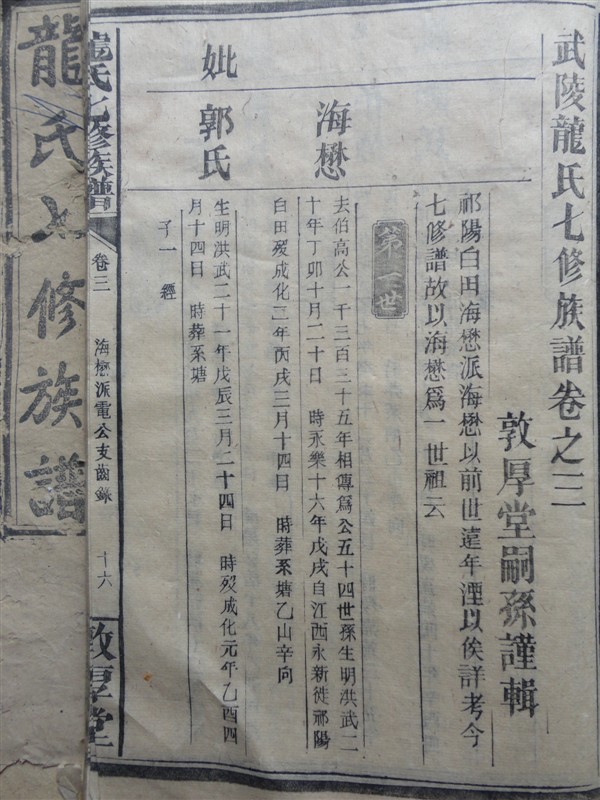 武陵龍氏七修族譜卷之三
敦厚堂嗣孫謹輯
祁陽白田海懋派海懋以前世遠年湮以俟詳考今
七修譜故以海懋爲一世祖云
第一世
海懋
去伯高公一千三百三十五年相傳爲公五十四世孫生明洪武二
十年丁卯十月二十日　時永樂十六年戊戌自江西永新徙祁陽
白田歿成化二年丙戌三月十四日　時葬系塘乙山辛向
妣
郭氏
生明洪武二十一年戊辰三月二十四日　時歿成化元年乙酉四
月十四日　時葬系塘
子一　經
龍氏七修族譜
卷三
海懋派電公支齒錄
十六
敦厚堂
龍氏七修族譜